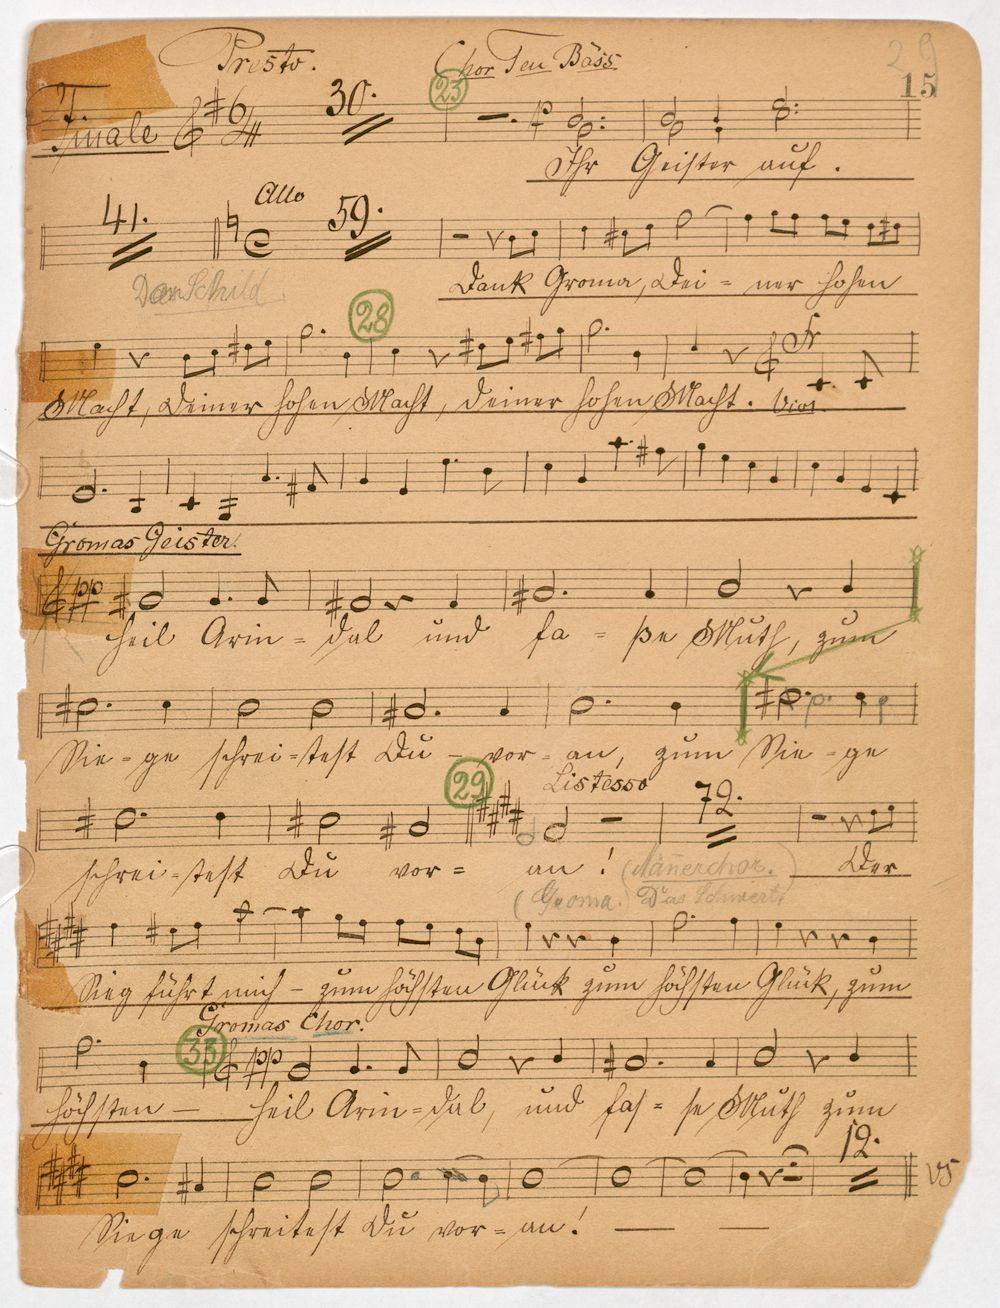 Presto. Chor Ten Bäss
29
15
Finale 6/4 30. 23
Ihr Geister auf.
41. Allo 59.
Den Schild
Dank Groma, Dei = ner hohen
28
Macht, Deiner hohen Macht, deiner hohen Macht. Viol.
Gromas Geister.
pp
Heil Arin = dal und fa = ße Muth, zum
Sie = ge schrei = test Du - vor = an, zum Sie = ge
29 Listesso 72.
schrei = test Du vor = an! (Männerchor.) Der
(Groma. Das Schwert,
Sieg führt mich - zum höchsten Glück zum höchsten Glück, zum
Gromas Chor.
33 pp
höchsten — Heil Arin = dal, und faſ = se Muth zum
12.
VS
Siege schreitest Du vor = an! — —